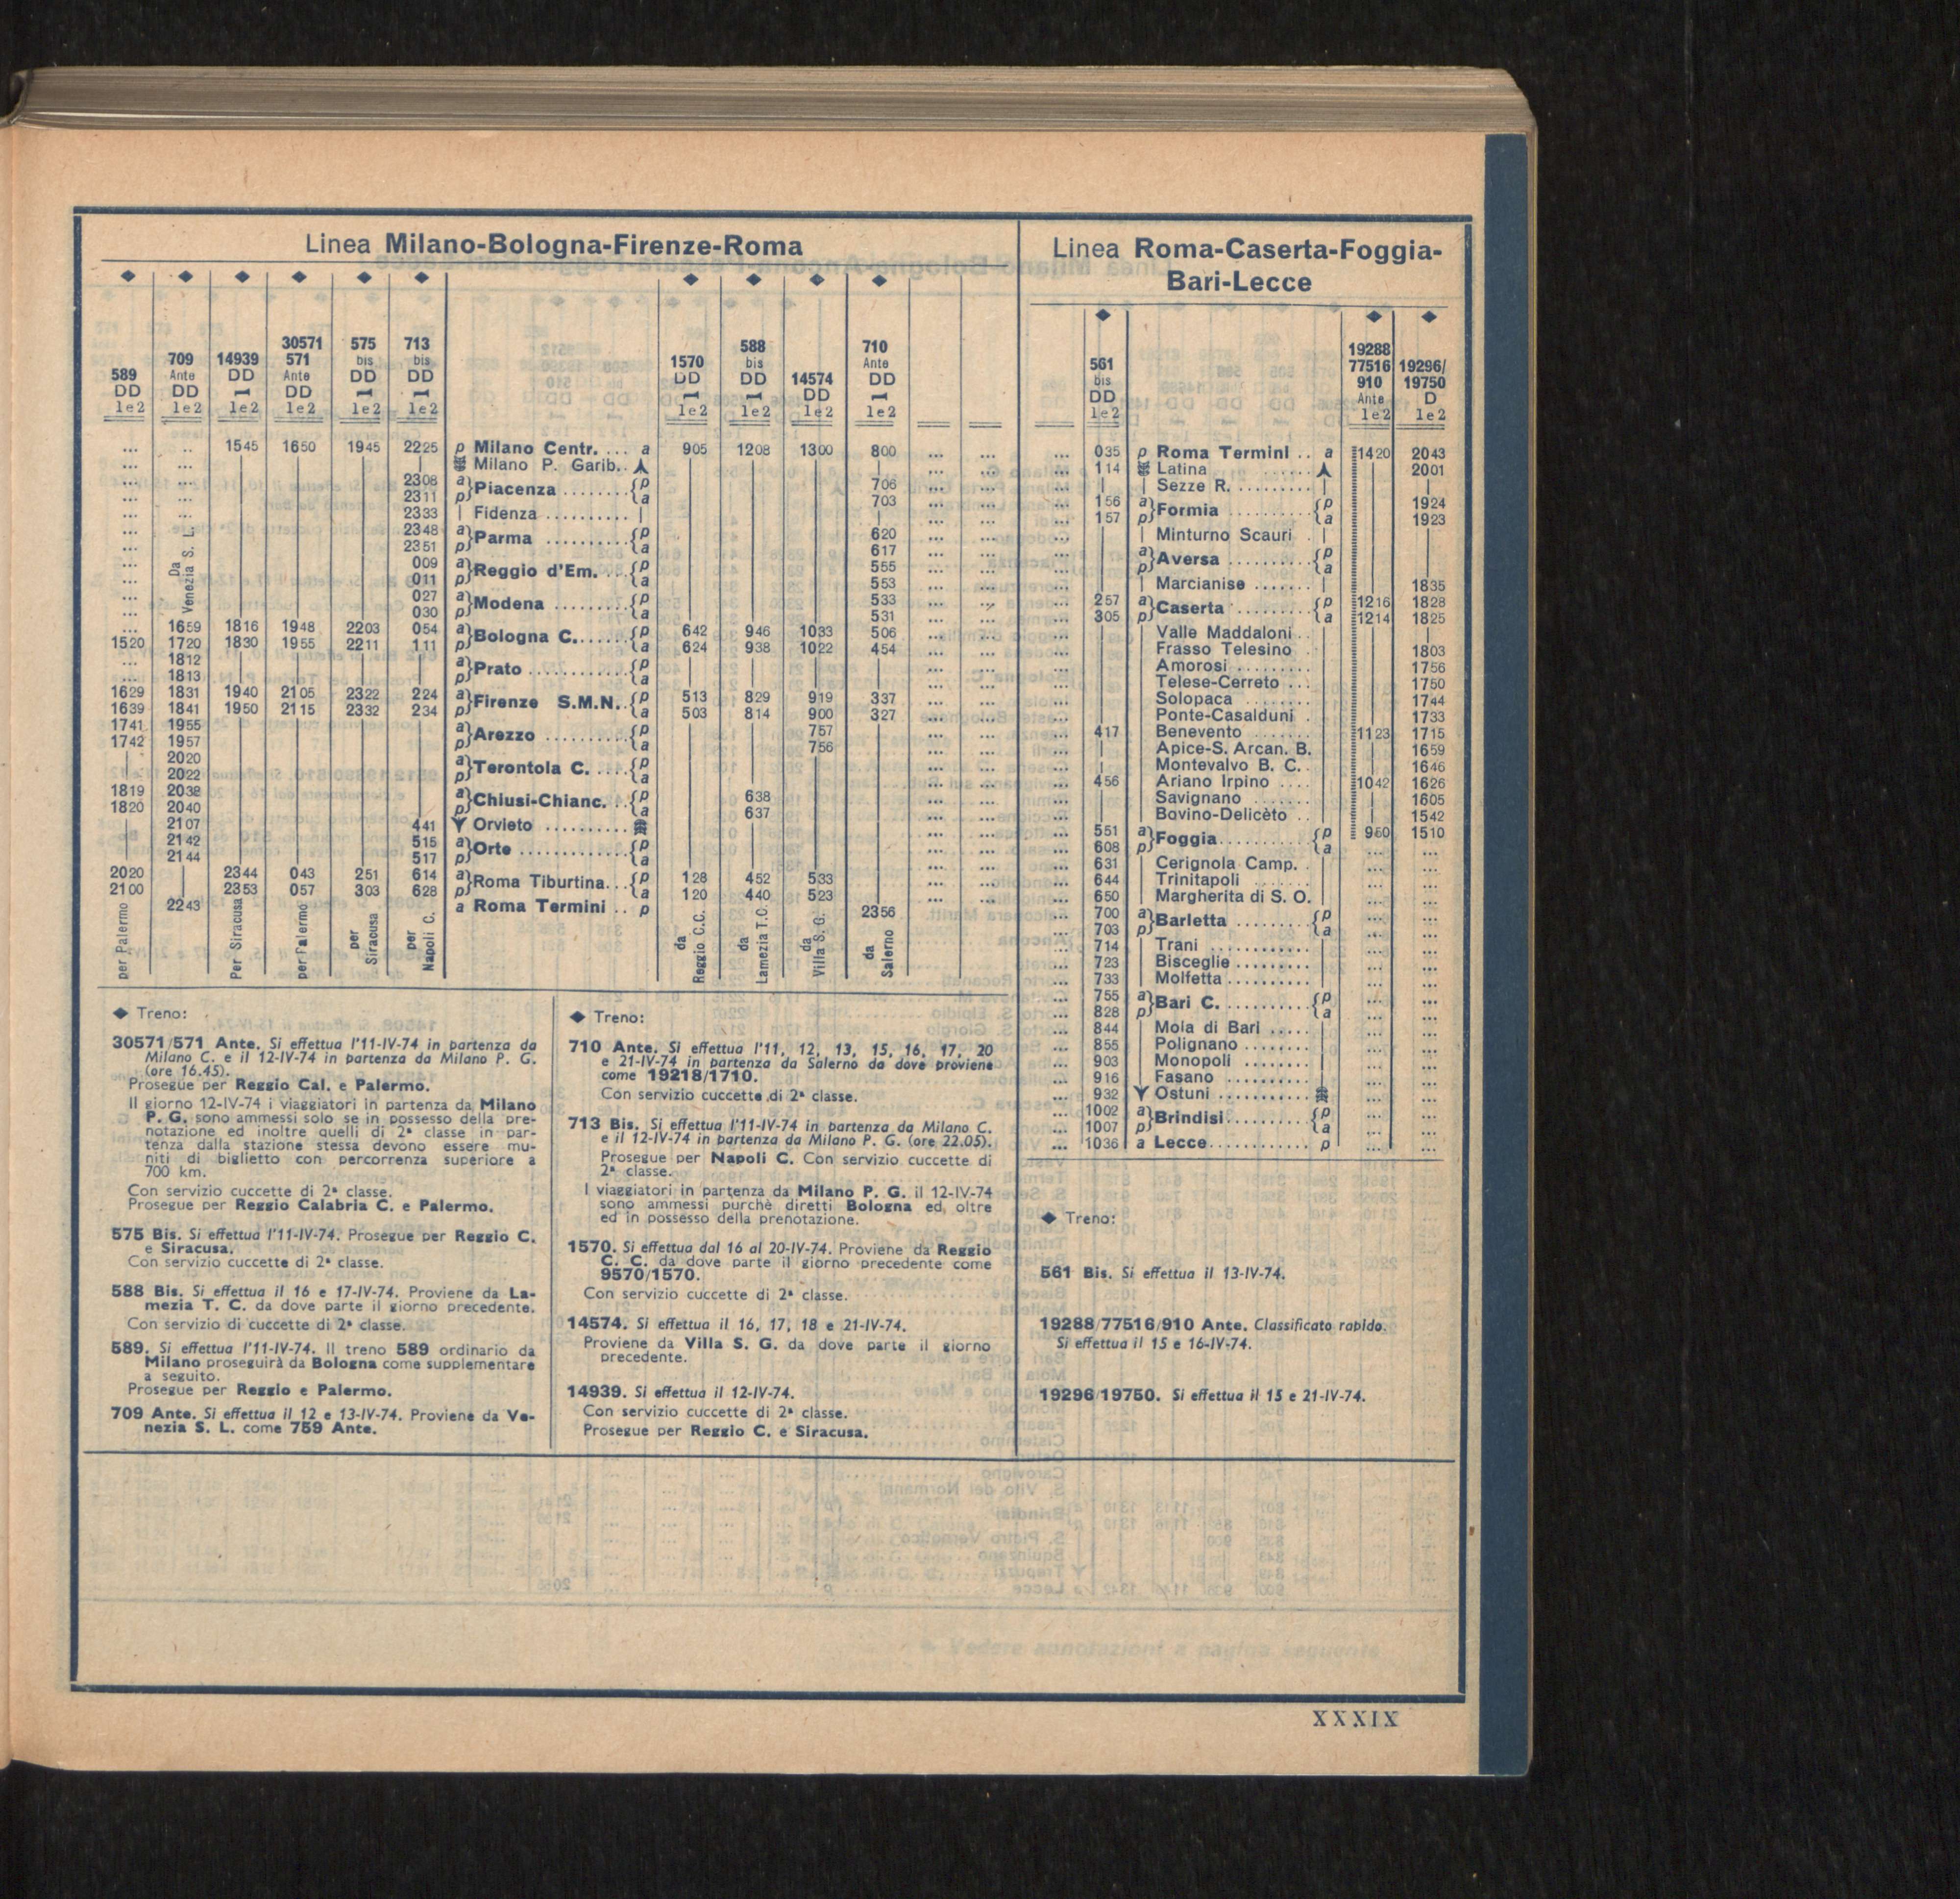 Linea Milano-Bologna-Firenze-Roma
589 DD 1e2
709 Ante DD 1e2
14939 DD 1e2
30571 571 Ante DD 1e2
575 bis DD 1e2
713 bis DD 1e2
1570 DD 1e2
588 bis DD 1e2
14574 DD 1e2
710 Ante DD 1e2
... .. 1545 1650 1945 2225 p Milano Centr. ... a 905 1208 1300 800 ... ...
... ... | Milano P. Garib. . | ... ...
... ... 2308 a Piacenza ........ p 706 ... ...
... ... 2311 p a 703 ... ...
... 2333 | Fidenza .......... | | ... ...
... 2348 a Parma .......... p 620 ... ...
... 2351 p a 617 ... ...
... Da Venezia S. L. 009 a Reggio d'Em. ... p 555 ... ...
... 011 p a 553 ... ...
... 027 a Modena ......... p 533 ... ...
... 030 p a 531 ... ...
... 1659 1816 1948 2203 054 a Bologna C....... p 642 946 1033 506 ... ...
1520 1720 1830 1955 2211 111 p a 624 938 1022 454 ... ...
... 1812 a Prato ............ p ... ...
... 1813 p a ... ...
1629 1831 1940 2105 2322 224 a Firenze S.M.N. . p 513 829 919 337 ... ...
1639 1841 1950 2115 2332 234 p a 503 814 900 327 ... ...
1741 1955 a Arezzo .......... p 757 ... ...
1742 1957 p a 756 ... ...
| 2020 a Terontola C. .... p ... ...
| 2022 p a ... ...
1819 2038 a Chiusi-Chianc. .. p 638 ... ...
1820 2040 p a 637 ... ...
2107 441 Orvieto .......... ... ...
2142 515 a Orte ............. p ... ...
2144 517 p a ... ...
2020 | 2344 043 251 614 a Roma Tiburtina... p 128 452 533 ... ...
2100 | 2353 057 303 628 p a 120 440 523 ... ...
2243 a Roma Termini .. p 2356
per Palermo
Per Siracusa
per Palermo
per Siracusa
per Napoli C.
da Reggio C.C.
da Lamezia T.C.
da Villa S. G.
da Salerno
◆ Treno:
30571/571 Ante. Si effettua l'11-IV-74 in partenza da
Milano C. e il 12-IV-74 in partenza da Milano P. G.
(ore 16.45).
Prosegue per Reggio Cal. e Palermo.
Il giorno 12-IV-74 i viaggiatori in partenza da Milano
P. G. sono ammessi solo se in possesso della pre-
notazione ed inoltre quelli di 2ª classe in par-
tenza dalla stazione stessa devono essere mu-
niti di biglietto con percorrenza superiore a
700 km.
Con servizio cuccette di 2ª classe.
Prosegue per Reggio Calabria C. e Palermo.
575 Bis. Si effettua l'11-IV-74. Prosegue per Reggio C.
e Siracusa.
Con servizio cuccette di 2ª classe.
588 Bis. Si effettua il 16 e 17-IV-74. Proviene da La-
mezia T. C. da dove parte il giorno precedente.
Con servizio di cuccette di 2ª classe.
589. Si effettua l'11-IV-74. Il treno 589 ordinario da
Milano proseguirà da Bologna come supplementare
a seguito.
Prosegue per Reggio e Palermo.
709 Ante. Si effettua il 12 e 13-IV-74. Proviene da Ve-
nezia S. L. come 759 Ante.
◆ Treno:
710 Ante. Si effettua l'11, 12, 13, 15, 16, 17, 20
e 21-IV-74 in partenza da Salerno da dove proviene
come 19218/1710.
Con servizio cuccette di 2ª classe.
713 Bis. Si effettua l'11-IV-74 in partenza da Milano C.
e il 12-IV-74 in partenza da Milano P. G. (ore 22.05).
Prosegue per Napoli C. Con servizio cuccette di
2ª classe.
I viaggiatori in partenza da Milano P. G. il 12-IV-74
sono ammessi purchè diretti Bologna ed oltre
ed in possesso della prenotazione.
1570. Si effettua dal 16 al 20-IV-74. Proviene da Reggio
C. C. da dove parte il giorno precedente come
9570/1570.
Con servizio cuccette di 2ª classe.
14574. Si effettua il 16, 17, 18 e 21-IV-74.
Proviene da Villa S. G. da dove parte il giorno
precedente.
14939. Si effettua il 12-IV-74.
Con servizio cuccette di 2ª classe.
Prosegue per Reggio C. e Siracusa.
Linea Roma-Caserta-Foggia-
Bari-Lecce
561 bis DD 1e2
19288 77516 910 Ante 1e2
19296/ 19750 D 1e2
... 035 p Roma Termini .. a 1420 2043
... 114 Latina ...... 2001
... | | Sezze R. ......... | |
... 156 a Formia .......... p 1924
... 157 p a 1923
... | Minturno Scauri . |
... a Aversa .......... p
... p a
... | Marcianise ....... | 1835
... 257 a Caserta ......... p 1216 1828
... 305 p a 1214 1825
... Valle Maddaloni . . |
... Frasso Telesino . 1803
... Amorosi ......... 1756
... Telese-Cerreto ... 1750
... Solopaca ........ 1744
... Ponte-Casalduni . 1733
... 417 Benevento ....... 1123 1715
... | Apice-S. Arcan. B. | 1659
... | Montevalvo B. C. . | 1646
... 456 Ariano Irpino .... 1042 1626
... Savignano ...... 1605
... Bovino-Delicèto .. 1542
... 551 a Foggia........... p 950 1510
... 608 p a ... ...
... 631 | Cerignola Camp. . | ... ...
... 644 Trinitapoli ....... ... ...
... 650 Margherita di S. O. ... ...
... 700 a Barletta ......... p ... ...
... 703 p a ... ...
... 714 | Trani ............ | ... ...
... 723 | Bisceglie ......... | ... ...
... 733 | Molfetta.......... | ... ...
... 755 a Bari C. .......... p ... ...
... 828 p a ... ...
... 844 | Mola di Bari ..... | ... ...
... 855 Polignano ........ ... ...
... 903 Monopoli ........ ... ...
... 916 Fasano .......... ... ...
... 932 Ostuni ........... ... ...
... 1002 a Brindisi.......... p ... ...
... 1007 p a ... ...
... 1036 a Lecce............ p ... ...
◆ Treno:
561 Bis. Si effettua il 13-IV-74.
19288/77516/910 Ante. Classificato rapido.
Si effettua il 15 e 16-IV-74.
19296/19750. Si effettua il 15 e 21-IV-74.
XXXIX